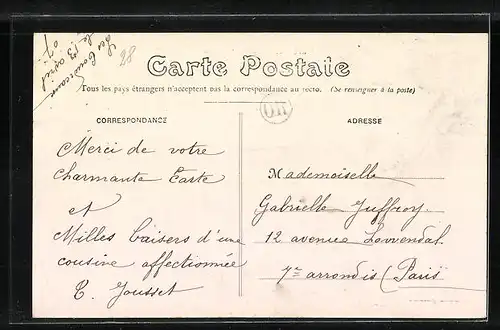 Les Couvreaux
le 13 avril
07
28
Carte Postale
Tous les pays étrangers n'acceptent pas la correspondance au recto. (Se renseigner à la poste)
OR
CORRESPONDANCE
ADRESSE
Merci de votre
charmante Carte
et
Milles baisers d'une
cousine affectionnée
E. Jousset
Mademoiselle
Gabrielle Juffroy.
12 avenue Lowendal.
7me arrondis (Paris